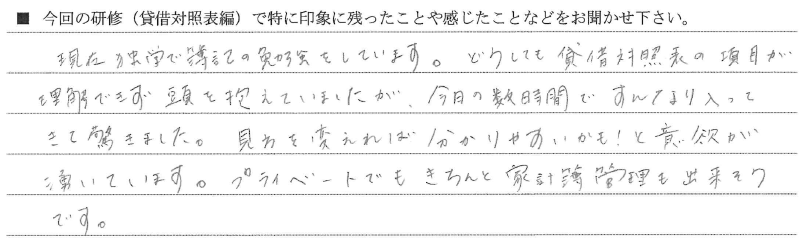 ■ 今回の研修（貸借対照表編）で特に印象に残ったことや感じたことなどをお聞かせ下さい。
現在独学で簿記の勉強をしています。どうしても貸借対照表の項目が
理解できず頭を抱えていましたが、今日の数時間ですんなり入って
きて驚きました。見方を変えれば分かりやすいかも！と意欲が
湧いています。プライベートでもきちんと家計簿管理も出来そう
です。